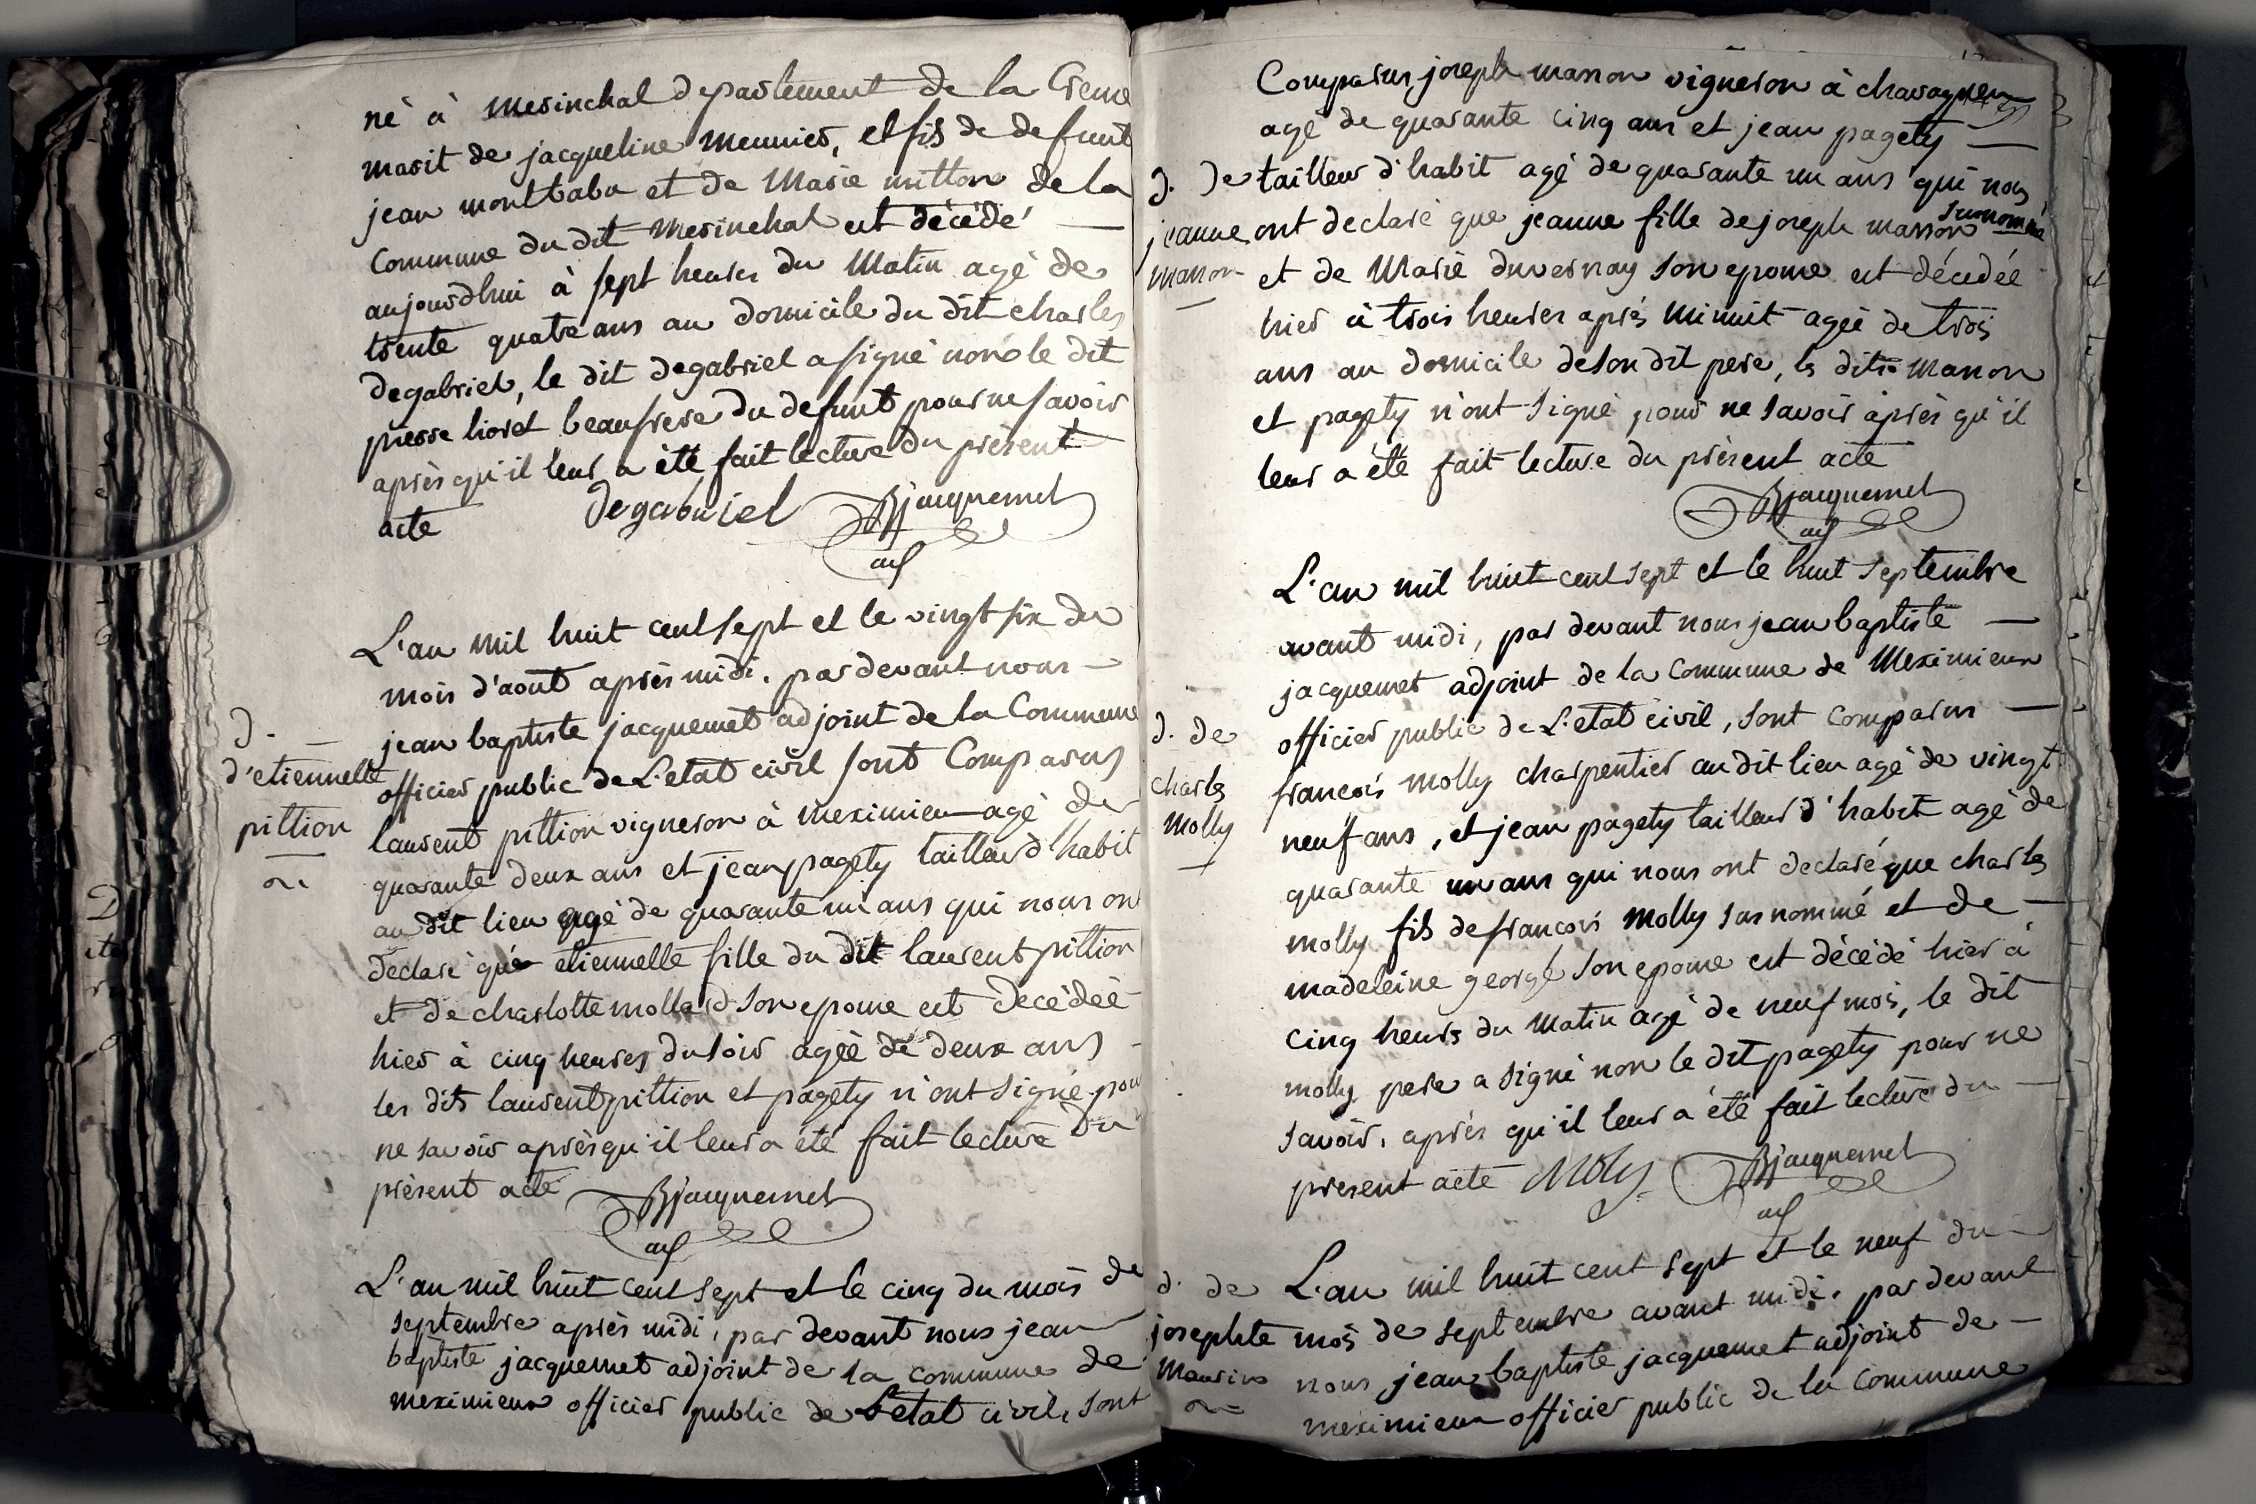 né à mesinchal departement de la Creuse
marit de jacqueline meunier, et fils de defunt
jean montbabu et de Marie mitton de la
Commune du dit mesinchal est décédé
aujourdhui à sept heures du Matin agé de
trente quatre ans au domicile du dit charles
degabriel, le dit degabriel a signé non le dit
pierre lioret beaufrere du defunt pour ne savoir
après qu'il leur a été fait lecture du présent
acte degabriel Bjacquemet
adj
L'an mil huit cent sept et le vingt six du
mois d'aout après midi, par devant nous
jean baptiste jacquemet adjoint de la Commune
d.
d'etiennette
pittion
officier public de L'etat civil sont Comparus
laurent pittion vigneron à meximieu agé de
quarante deux ans et jean pagety tailleur d'habit
au dit lieu agé de quarante un ans qui nous on
declaré que etiennette fille du dit laurent pittion
et de charlotte mollard son epouse est décédée
hier à cinq heures du soir agée de deux ans
les dits laurent pittion et pagety n'ont signé pour
ne savoir après qu'il leur a été fait lecture du
présent acte Bjacquemet
adj
L'an mil huit cent sept et le cinq du mois de
septembre après midi, par devant nous jean
baptiste jacquemet adjoint de la commune de
meximieux officier public de L'etat civil, sont
Comparus joseph manon vigneron à
agé de quarante cinq ans et jean pagety
d. de
jeanne
manon
tailleur d'habit agé de quarante un ans qui nous
ont declaré que jeanne fille de joseph manon surnommé
et de Marie duvernay son epouse est décédée
hier à trois heures après minuit agée de trois
ans au domicile de son dit pere, les dits manon
et pagety n'ont signé pour ne savoir après qu'il
leur a été fait lecture du présent acte
Bjacquemet
adj
L'an mil huit cent sept et le huit septembre
avant midi, par devant nous jean baptiste
jacquemet adjoint de la Commune de Meximieux
d. de
charles
molly
officier public de L'etat civil, sont comparus
francois molly charpentier au dit lieu agé de vingt
neuf ans, et jean pagety tailleur d'habit agé de
quarante un ans qui nous ont declaré que charles
molly fils de francois molly surnommé et de
madeleine george son epouse est décédé hier à
cinq heures du matin agé de neuf mois, le dit
molly pere a signé non le dit pagety pour ne
savoir, après qu'il leur a été fait lecture du
present acte Moly Bjacquemet
adj
d. de
josephte
L'an mil huit cent sept et le neuf du
mois de septembre avant midi, par devant
nous jean baptiste jacquemet adjoint de
meximieux officier public de la commune